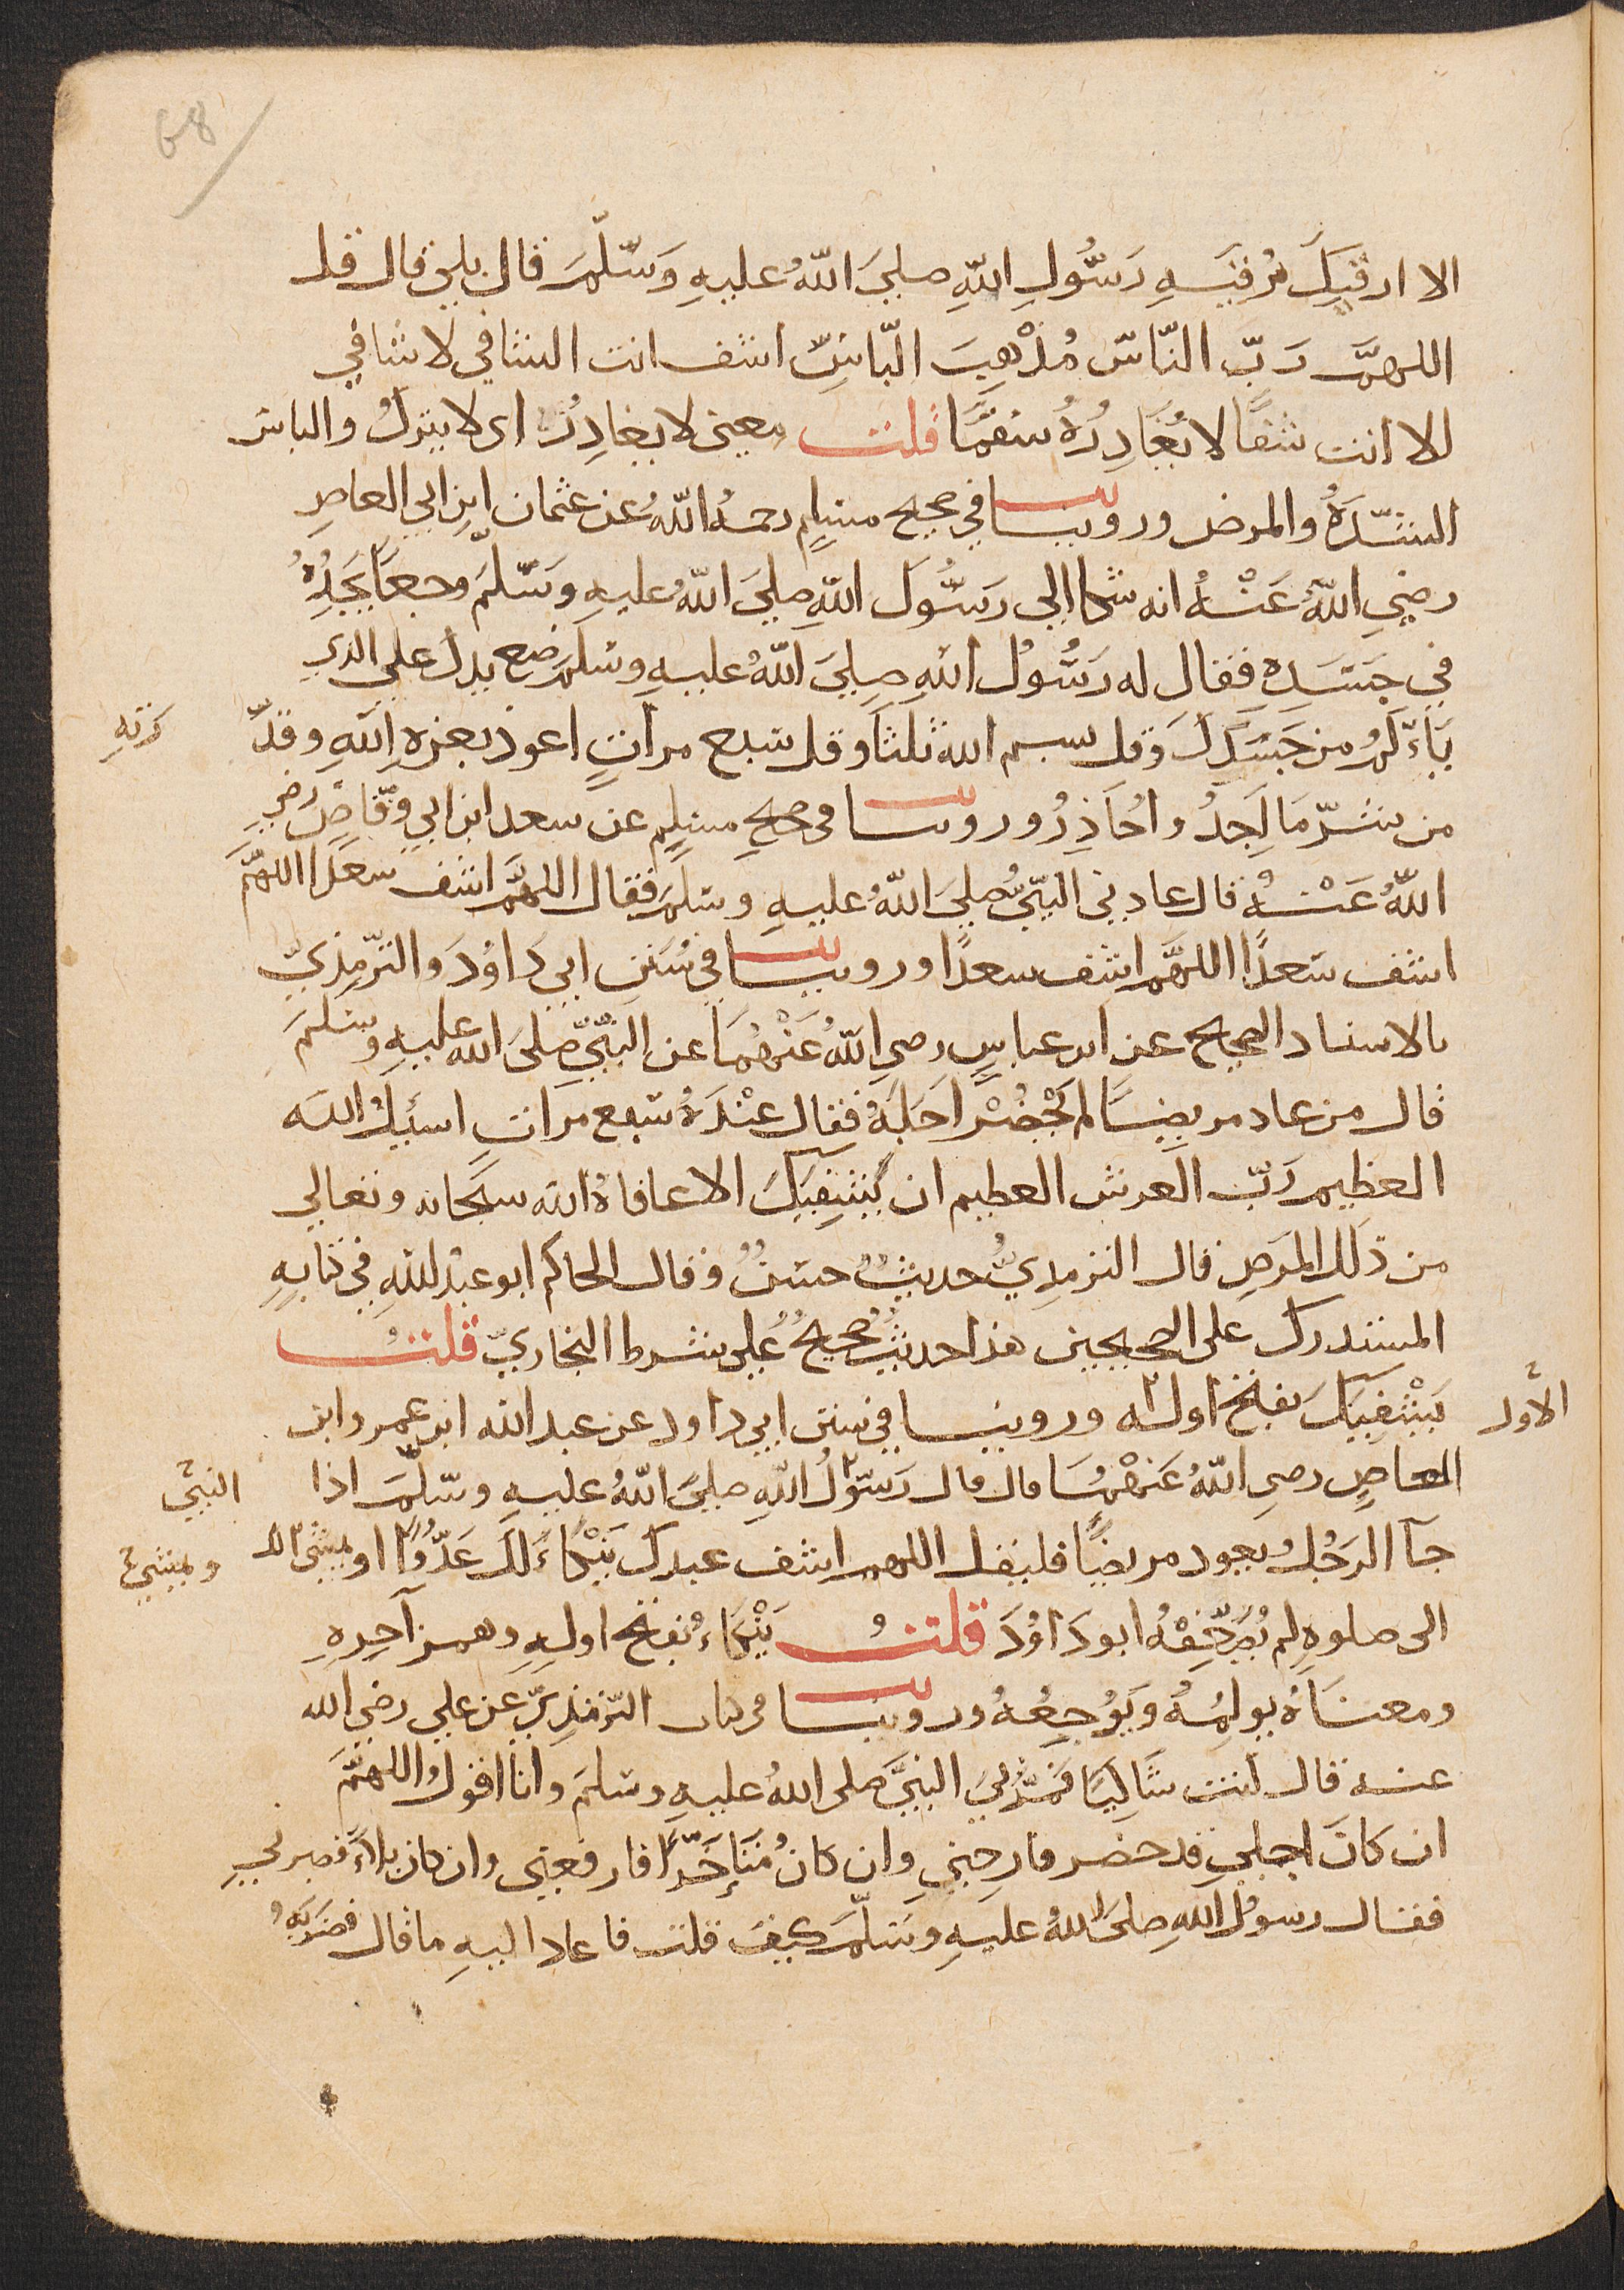 68
الا ارقيك برقيه رَسُولِ اللهِ صليَ اللهُ عليهِ وَسَلّمَ قال بلي قال قل
اللهمَّ رَبّ النّاس مُذْهِبَ البّاسِ اشف انت الشافي لا شافي
الا انت شفًا لا يُغَادِرُ سقمًا قلت معنى لا يغادِرُ اى لا يترك والباس
الشدّةُ والمرض وروينا في صحيح مسلمٍ رحمهُ اللهُ عن عثمان ابن ابي العاصِ
رضيِ اللهُ عَنْهُ انه شكا الي رَسُولَ اللهِ صليَ اللهُ عليهِ وسَلّمَ وجعًا يَجِدُهُ
في جَسَدِهِ فقال له رَسُولُ اللهِ صليَ اللهُ عليهِ وسَلمَ ضع يدك علي الذي
يَاءلَمُ من جَسَدِكَ وَقل بسم الله ثلثًا وقل سبع مراتٍ اعوذ بعزهِ اللهِ وقد
رته
من شرّ مَا اَجِدُ واُحَاذِرُ وروينا فى صحيحِ مسلمٍ عن سعد ابن ابي وَقّاصٍ رضي
اللهُ عَنْهُ قال عادني النبيُّ صليَ اللهُ عليهِ وسَلمَ فقال اللهمَّ اشف سعدًا اللهمَّ
اشف سَعدًا اللهمَّ اشف سعدًا وروينا في سُنَنِ ابي دَاوُدَ والترّمِذيّ
بالاسناد الصحيح عن ابن عباسٍ رضىِ اللهُ عَنْهُمَا عن النبّيِّ صَلىَ اللهُ عليهِ وسَلمَ
قال من عاد مريضًا لم يَحْضُرْ اجَلَهُ فقال عنْدَهُ سَبع مراتٍ اسئل الله
العظيم رَبّ العرش العظيم ان يَشْفِيَكَ الا عافاهُ الله سبحانه وتعالي
من ذلك المرَضِ قال الترمذيُّ حديثٌ حسَنٌ وقال الحاكم ابو عَبْد اللهِ في كتابهِ
المستدرك على الصحيحين هذا حديثٌ صحيحٌ علي شرط البخاريّ قلتُ
يَشْفِيكَ بفتح اوله وروينا في سنن ابي داود عن عبد الله ابن عمرو ابن
الاَّول
العاصِ رضىِ اللهُ عَنْهُمَا قال قال رَسُوْلُ اللهِ صليَ اللهُ عليهِ وسَلّمَ اذا
النبيُّ
جآ الرجُل يعود مريضًا فليقل اللهم اشف عبدك يَنْكَاءُ لك عَدُوًّا او يمشي لك
ويمشي
الى صلوةٍ لم يُضَعِّفْهُ ابو دَاوُدَ قلتُ يَنْكَاءُ بفتح اولهِ وهمز آخرهِ
ومعنَاهُ يولِمُهُ وَيُوجِعُهُ وروينا فى كتاب الترّمذيِّ عن علي رضي الله
عنه قال كنت شَاكيًا فمَرَّ بيَ النبيُّ صلى اللهُ عليهِ وسَلمَ وانا اقول اللهمَّ
ان كانَ اجلي قد حضر فارحنِي وان كانُ مُتَاخّرًا فارفعنِي وان كان بلاءً فصبرني
فقال رسوُل اللهِ صلىَ اللهُ عليهِ وسَلّمَ كيف قلت فاعاد اليهِ ما قال فضرَبَهُ